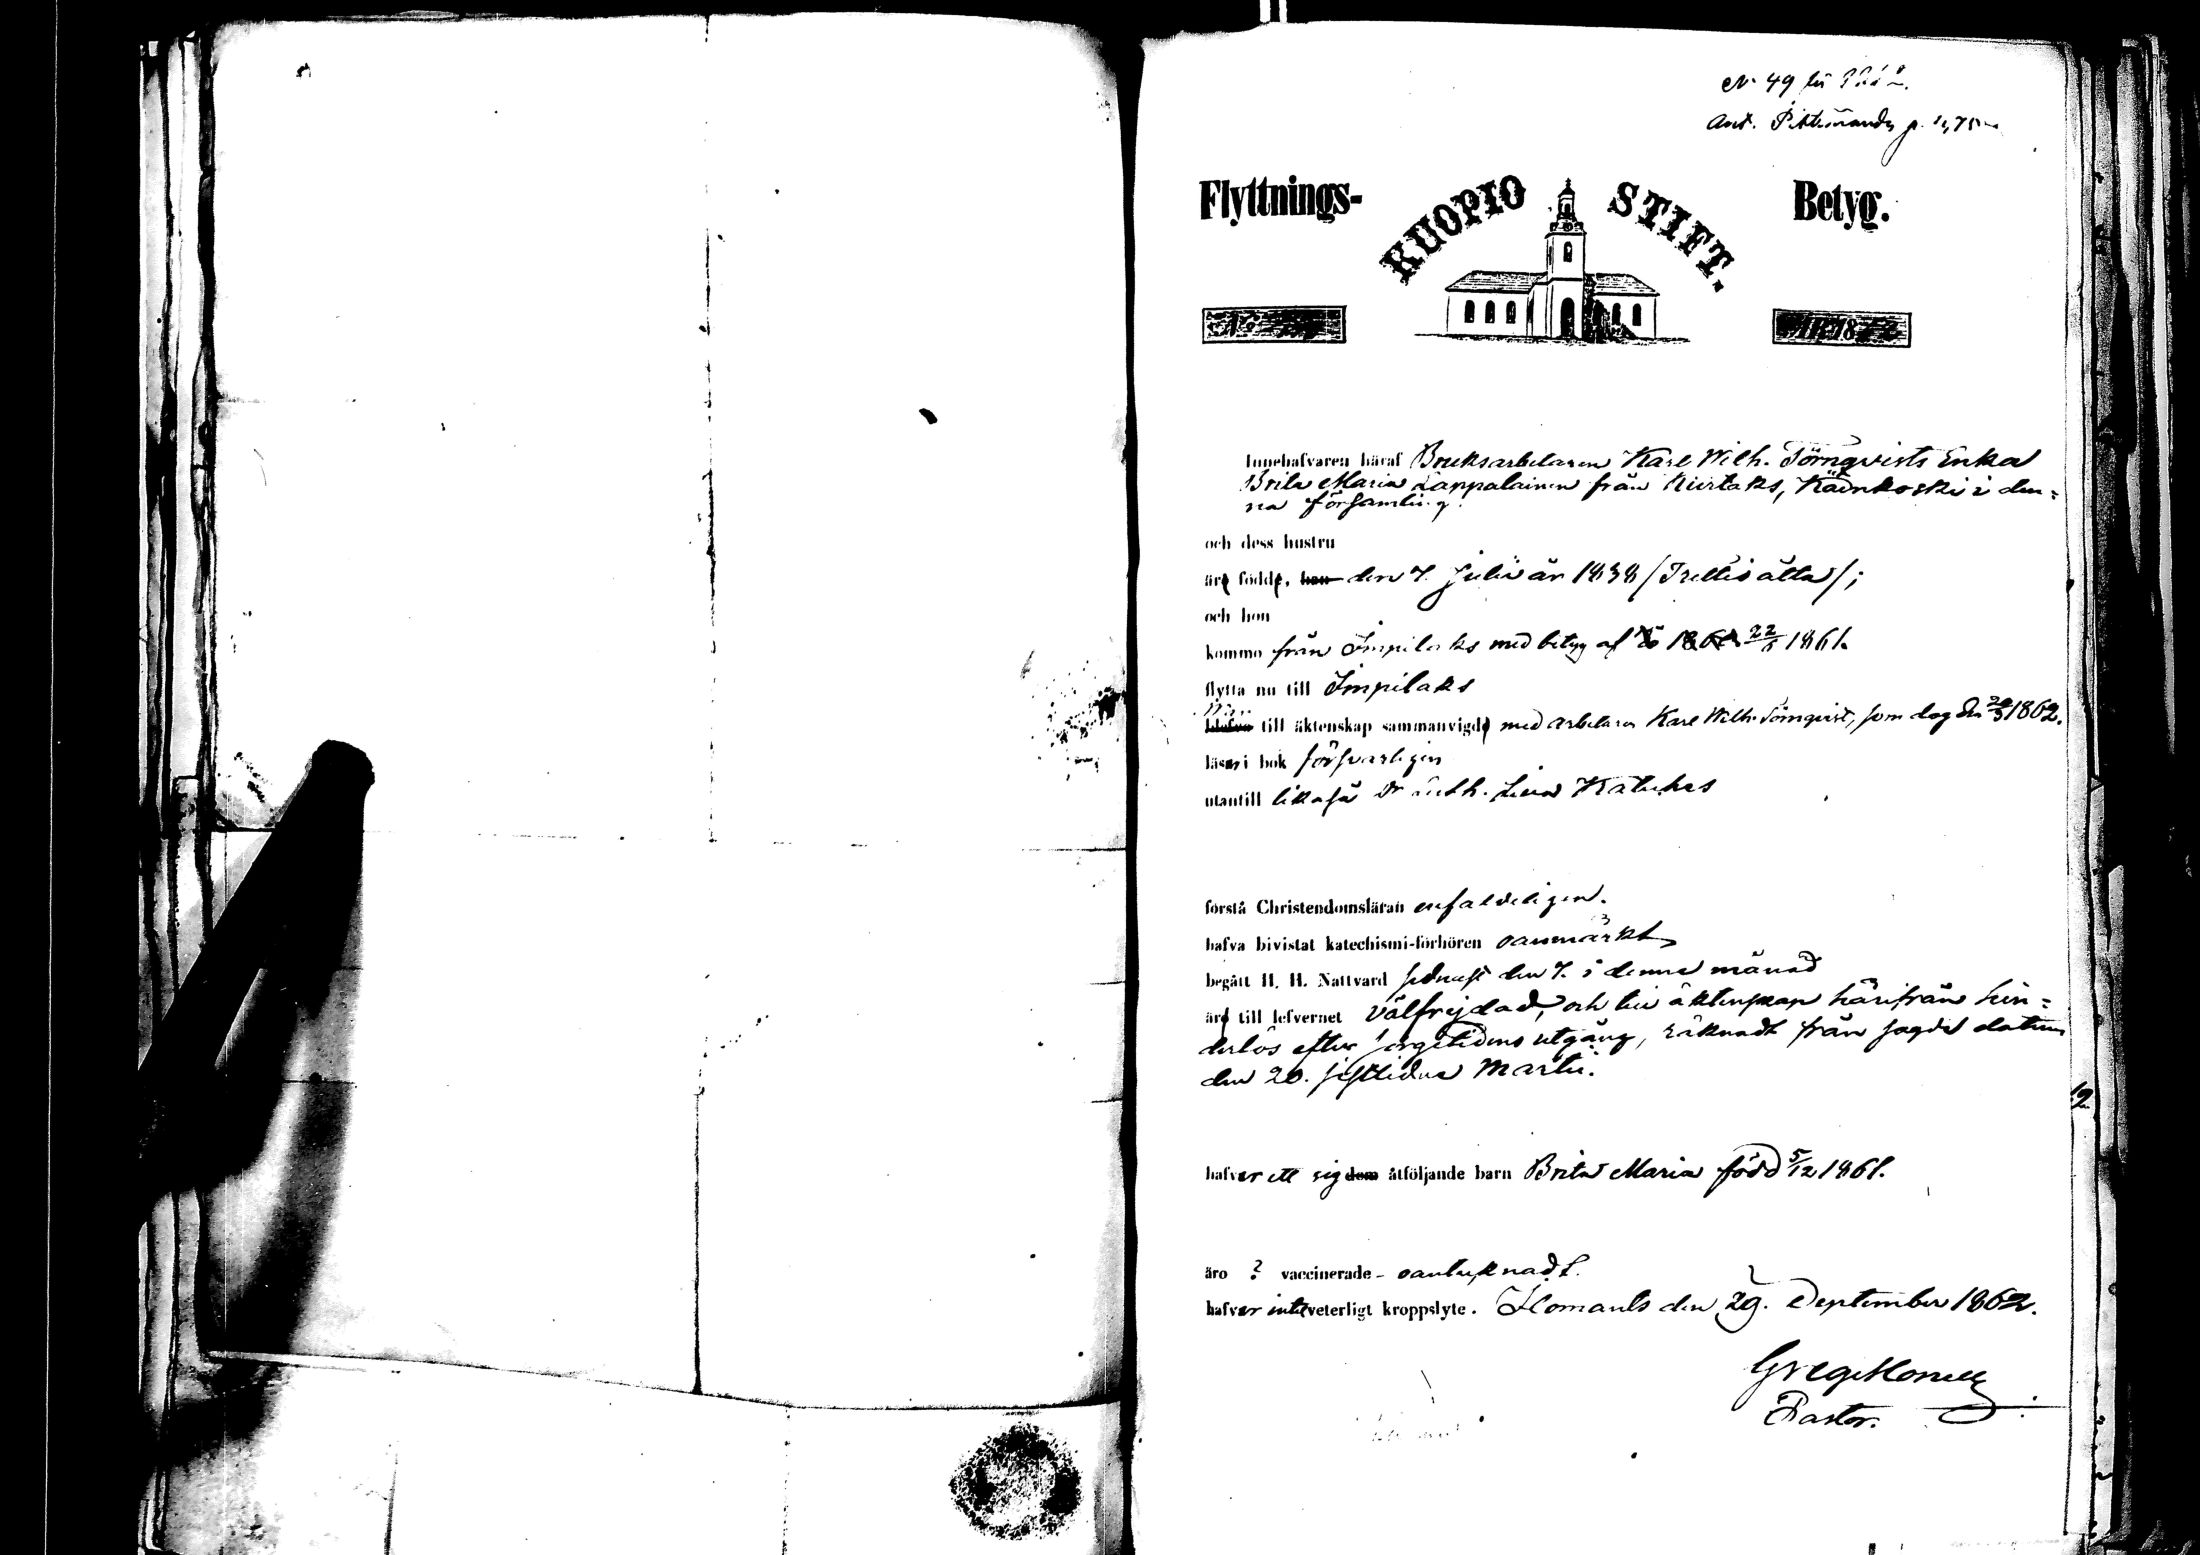 N. 49
Ant. Pitkäranda p.
Flyttnings- KUOPIO STIFT. Betyg.
ÅR 1862
Innehafvaren häraf Bruksarbetaren Karl Wilh. Törnqvists Enka
Brita Maria Lappalainen från Kuertaks, Käenkoski i den=
na församling
och dess hustru
äro födde, han den 7. Julii år 1838 /Trettioåtta/;
och hon
kommo från Impilaks med betyg af 22/5 1861.
flytta nu till Impilaks
till äktenskap sammanvigde med arbetaren Karl Wilh. Törnqvist, som dog den 20/3 1862.
läser i bok försvarligen
utantill likaså Dr Luth. Lilla Kateches
förstå Christendomsläran enfaldeligen.
hafva bivistat katechismi-förhören oanmärkt
begått H. H. Nattvard sednast den 7. i denna månad
äro till lefvernet välfrejdad, och till äktenskap härifrån hin=
derlös efter sorgetidens utgång, räknadt från sagde datum
den 20. sistlidne Martii.
hafver ett sig dem åtföljande barn Brita Maria född 5/12 1861.
äro ? vaccinerade - oantecknadt.
hafver inte veterligt kroppslyte. Ilomants den 29. September 1862.
Pastor.